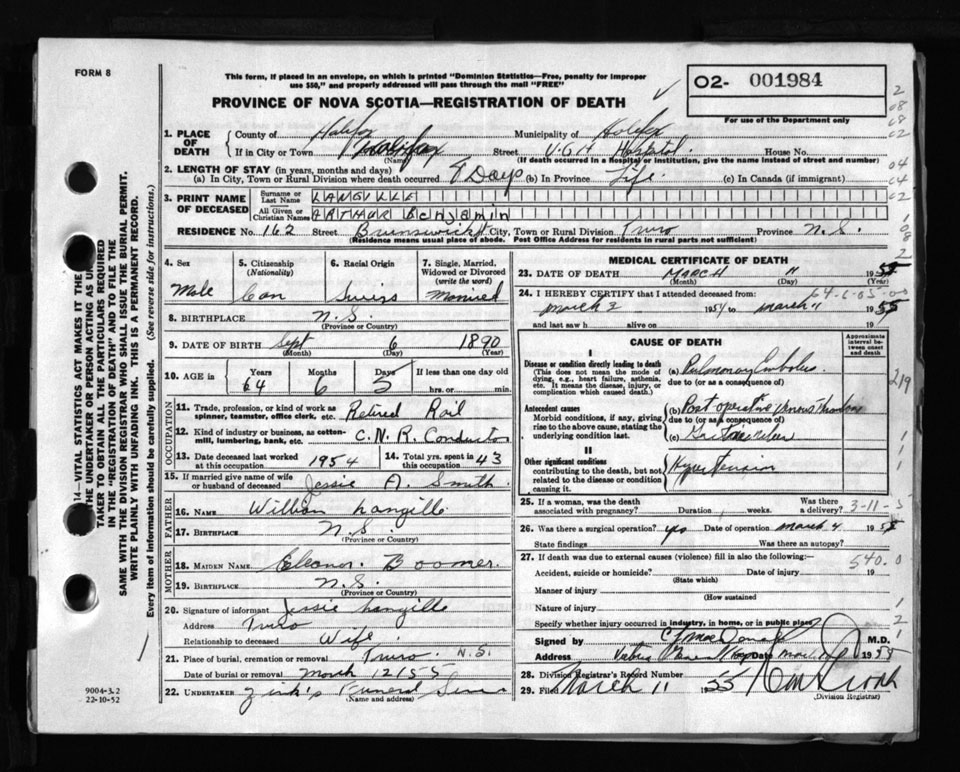 FORM 8
This form, if placed in an envelope, on which is printed "Dominion Statistics—Free, penalty for improper
use $50," and properly addressed will pass through the mail "FREE"
PROVINCE OF NOVA SCOTIA—REGISTRATION OF DEATH
02- 001984
For use of the Department only
1. PLACE OF DEATH County of Halifax Municipality of Halifax
If in City or Town Halifax Street V.G.H Hospital. House No.
(Name) (If death occurred in a hospital or institution, give the name instead of street and number)
2. LENGTH OF STAY (in years, months and days)
(a) In City, Town or Rural Division where death occurred 8 Days (b) In Province Life. (c) In Canada (if immigrant)
3. PRINT NAME OF DECEASED Surname or Last Name LANGILLE
All Given or Christian Names ARTHUR Benjamin
RESIDENCE No. 162 Street Brunswick City, Town or Rural Division Truro Province N.S.
(Residence means usual place of abode. Post Office Address for residents in rural parts not sufficient)
4. Sex Male
5. Citizenship (Nationality) Can
6. Racial Origin Swiss
7. Single, Married, Widowed or Divorced (write the word) Married
8. BIRTHPLACE N.S.
(Province or Country)
9. DATE OF BIRTH Sept 6 1890
(Month) (Day) (Year)
10. AGE in Years Months Days If less than one day
64 6 5 hrs. or min.
OCCUPATION
11. Trade, profession, or kind of work as spinner, teamster, office clerk, etc. Retired Rail
12. Kind of industry or business, as cotton-mill, lumbering, bank, etc. C.N.R. Conductor
13. Date deceased last worked at this occupation 1954
14. Total yrs. spent in this occupation 43
15. If married give name of wife or husband of deceased Jessie A. Smith.
FATHER
16. NAME William Langille
17. BIRTHPLACE N.S.
(Province or Country)
MOTHER
18. MAIDEN NAME Eleanor Boomer.
19. BIRTHPLACE N.S.
(Province or Country)
20. Signature of informant Jessie Langille
Address Truro
Relationship to deceased Wife.
21. Place of burial, cremation or removal Truro N.S.
Date of burial or removal March 12 1955
22. UNDERTAKER Funeral
(Name and address)
MEDICAL CERTIFICATE OF DEATH
23. DATE OF DEATH MARCH 11 1955
(Month) (Day) (Year)
24. I HEREBY CERTIFY that I attended deceased from
March 1955 to March 11 1955
and last saw h alive on 19
CAUSE OF DEATH
Approximate interval between onset and death
I
Disease or condition directly leading to death
(This does not mean the mode of dying, e.g., heart failure, asthenia, etc. It means the disease, injury, or complication which caused death)
(a) Pulmonary Embolus
due to (or as a consequence of)
Antecedent causes
Morbid conditions, if any, giving rise to the above cause, stating the underlying condition last.
(b) Post operative venous
due to (or as a consequence of)
(c)
II
Other significant conditions
contributing to the death, but not related to the disease or condition causing it.
Hypertension
25. If a woman, was the death associated with pregnancy? Duration weeks. Was there a delivery?
3-11-5
26. Was there a surgical operation? yes Date of operation March 4 1955
State findings Was there an autopsy?
27. If death was due to external causes (violence) fill in also the following:
540.0
Accident, suicide or homicide? Date of injury 19
(State which)
Manner of injury
(How sustained
Nature of injury
Specify whether injury occurred in industry, in home, or in public place
Signed by M.D.
Address Victoria Date 1955
28. Division Registrar's Record Number
29. Filed March 11 1955
(Division Registrar)
9004-3.2
22-10-52
SAME WITH THE DIVISION REGISTRAR WHO SHALL ISSUE THE BURIAL PERMIT.
WRITE PLAINLY WITH UNFADING INK. THIS IS A PERMANENT RECORD.
Every item of information should be carefully supplied. (See reverse side for instructions.)
14—VITAL STATISTICS ACT MAKES IT THE
THE UNDERTAKER OR PERSON ACTING AS
TAKER TO OBTAIN ALL THE PARTICULARS REQUIRED
IN THE "REGISTRATION OF DEATH" AND TO FILE THE
219